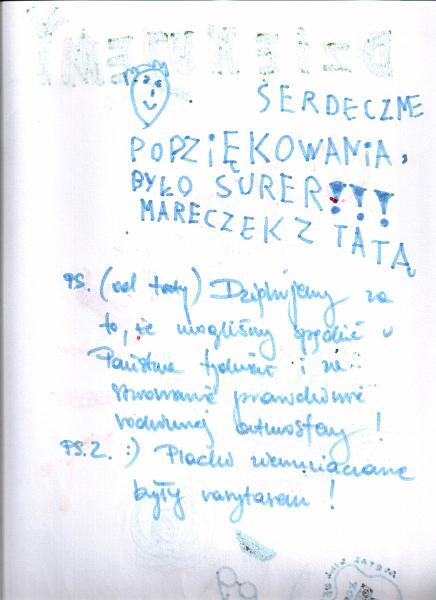 SERDĘCZME
POPZIĘKOWAMIA,
BYŁO SURER!!!
MARECZEK Z TATĄ
PS. (od taty) Dziękujemy za
to, że mogliśmy spędzić u
Państwa tydzień i za
stworzenie prawdziwie
rodzinnej atmosfery!
PS.2. :) Placki ziemniaczane
były rarytasem!